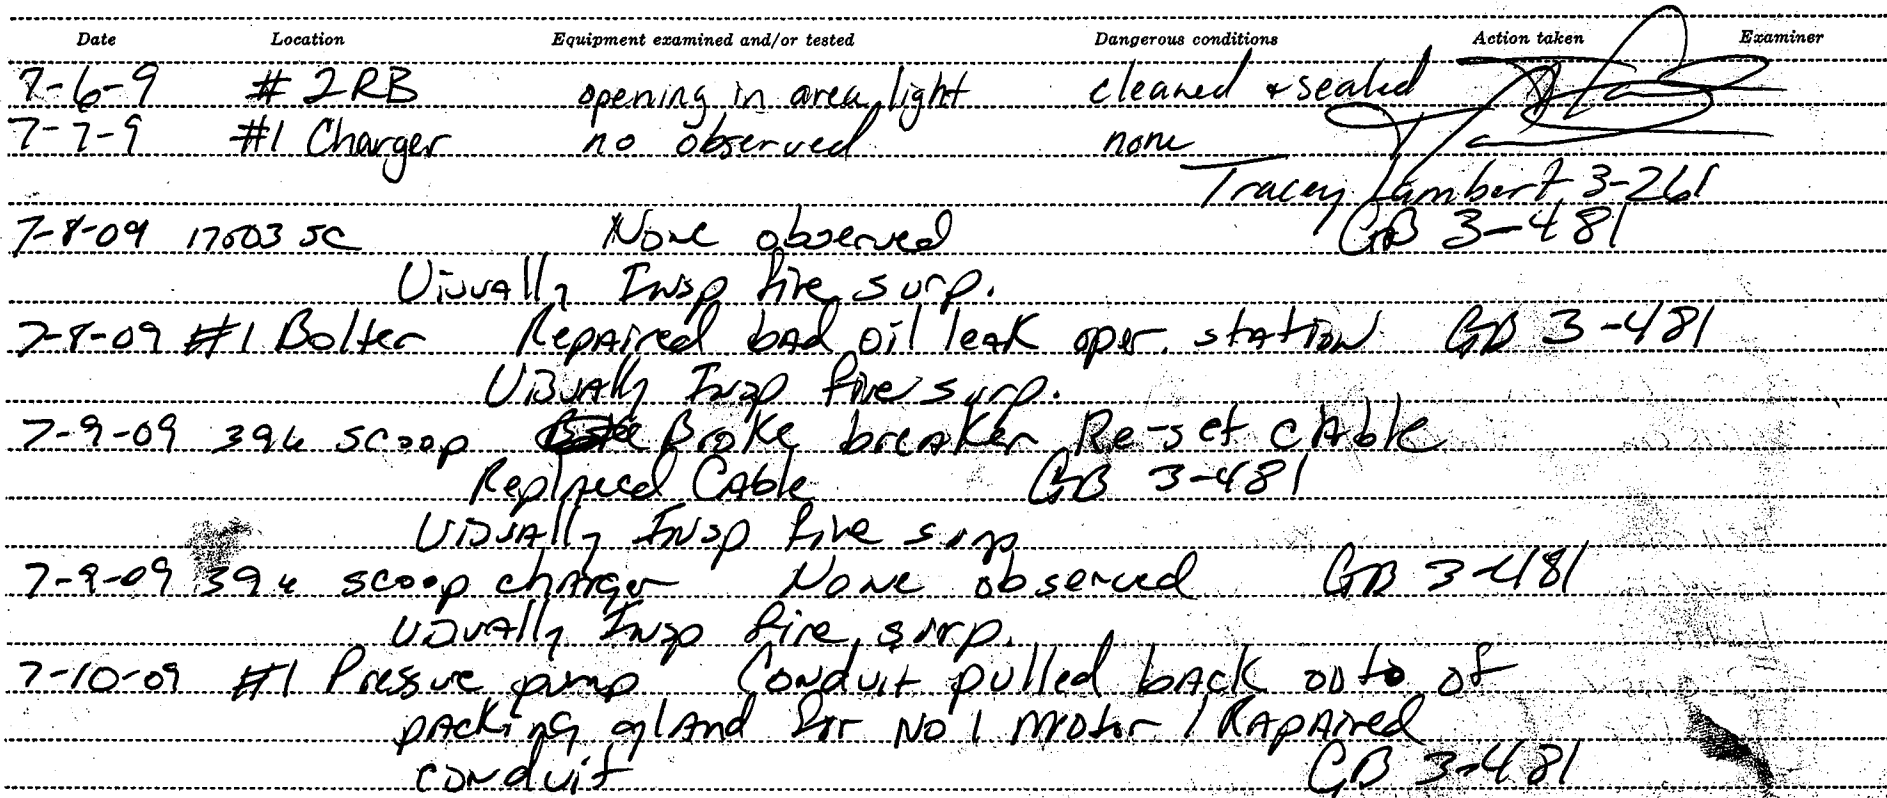 Date Location Equipment examined and/or tested Dangerous conditions Action taken Examiner
7-6-9 # 2RB opening in area light cleaned & sealed
7-7-9 #1 Charger no observed none
Tracey Lambert 3-261
7-8-09 17603 SC None observed GB 3-481
Visually Insp fire surp.
7-8-09 #1 Bolter Repaired bad oil leak oper. station GB 3-481
Visually Insp fire surp.
7-9-09 394 scoop Broke breaker Re-set cable
Replaced Cable GB 3-481
Visually Insp fire surp
7-9-09 394 scoop charger None observed GB 3-481
Visually Insp fire surp.
7-10-09 #1 Presure pump Conduit pulled back of
packing gland for No 1 motor / Rapaired
conduit GB 3-481